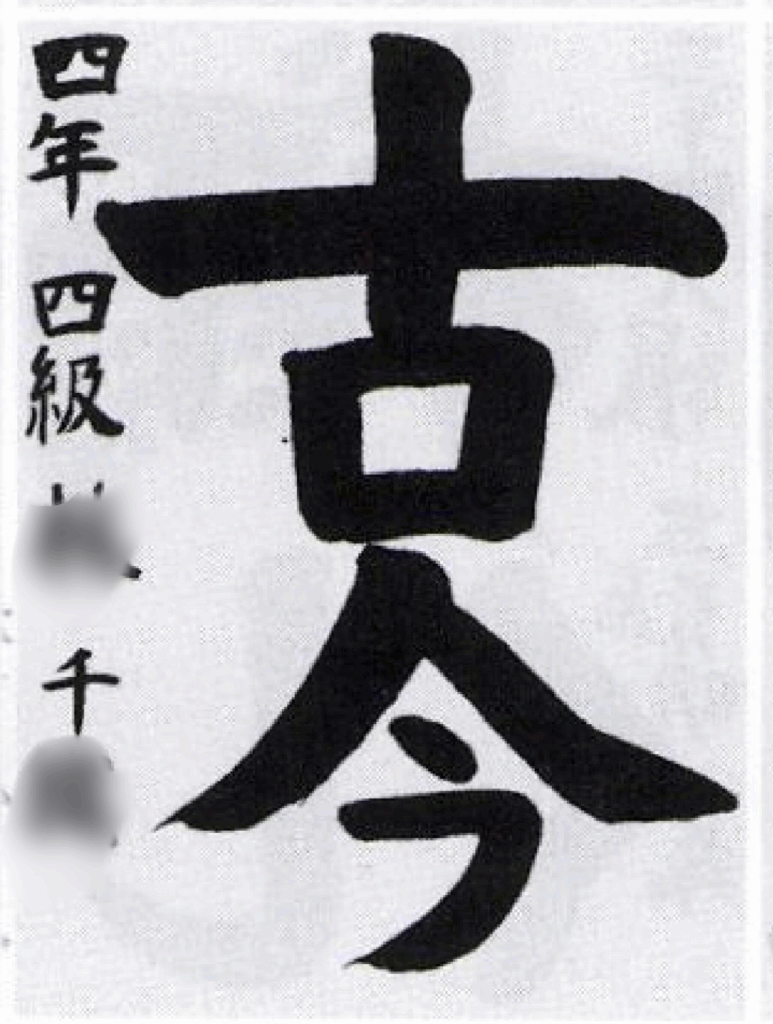 古今
四年 四級 千